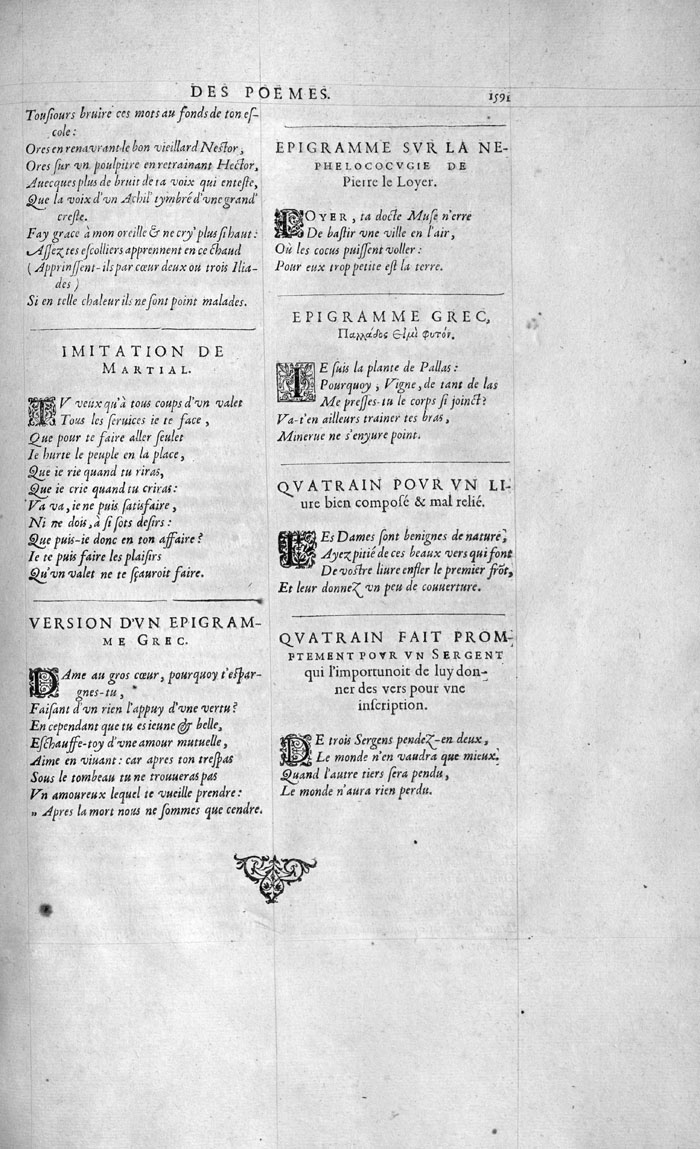 DES POEMES.
1591
Tousiours bruire ces mots au fonds de ton es-
cole:
Ores en renavrant le bon vieillard Nestor,
Ores sur un poulpitre en retrainant Hector,
Auecques plus de bruit de ta voix qui enteste,
Que la voix d'vn Achil' tymbré d'vne grand'
creste.
Fay grace à mon oreille & ne cry' plus si haut:
Assez tes escolliers apprennent en ce chaud
(Apprinssent-ils par cœur deux ou trois Ilia-
des)
Si en telle chaleur ils ne sont point malades.
IMITATION DE
MARTIAL.
TV veux qu'à tous coups d'vn valet
Tous les seruices ie te face,
Que pour te faire aller seulet
Ie hurte le peuple en la place,
Que ie rie quand tu riras,
Que ie crie quand tu criras:
Va va, ie ne puis satisfaire,
Ni ne dois, à si sots desirs:
Que puis-ie donc en ton affaire?
Ie te puis faire les plaisirs
Qu'vn valet ne te sçauroit faire.
VERSION D'VN EPIGRAM-
ME GREC.
DAme au gros cœur, pourquoy t'espar-
gnes-tu,
Faisant d'vn rien l'appuy d'vne vertu?
En cependant que tu es ieune & belle,
Eschauffe-toy d'vne amour mutuelle,
Aime en viuant: car apres ton trespas
Sous le tombeau tu ne trouueras pas
Vn amoureux lequel te vueille prendre:
" Apres la mort nous ne sommes que cendre.
EPIGRAMME SVR LA NE-
PHELOCOCVGIE DE
Pierre le Loyer.
LOYER, ta docte Muse n'erre
De bastir vne ville en l'air,
Où les cocus puissent voller:
Pour eux trop petite est la terre.
EPIGRAMME GREC,
Παλλάδος Εἰμὶ φυτόν.
IE suis la plante de Pallas:
Pourquoy, Vigne, de tant de las
Me presses-tu le corps si joinct?
Va-t'en ailleurs trainer tes bras,
Minerue ne s'enyure point.
QVATRAIN POVR VN LI-
ure bien composé & mal relié.
LEs Dames sont benignes de nature,
Ayez pitié de ces beaux vers qui font
De vostre liure enfler le premier frõt,
Et leur donnez vn peu de couuerture.
QVATRAIN FAIT PROM-
PTEMENT POVR VN SERGENT
qui l'importunoit de luy don-
ner des vers pour vne
inscription.
DE trois Sergens pendez-en deux,
Le monde n'en vaudra que mieux:
Quand l'autre tiers sera pendu,
Le monde n'aura rien perdu.